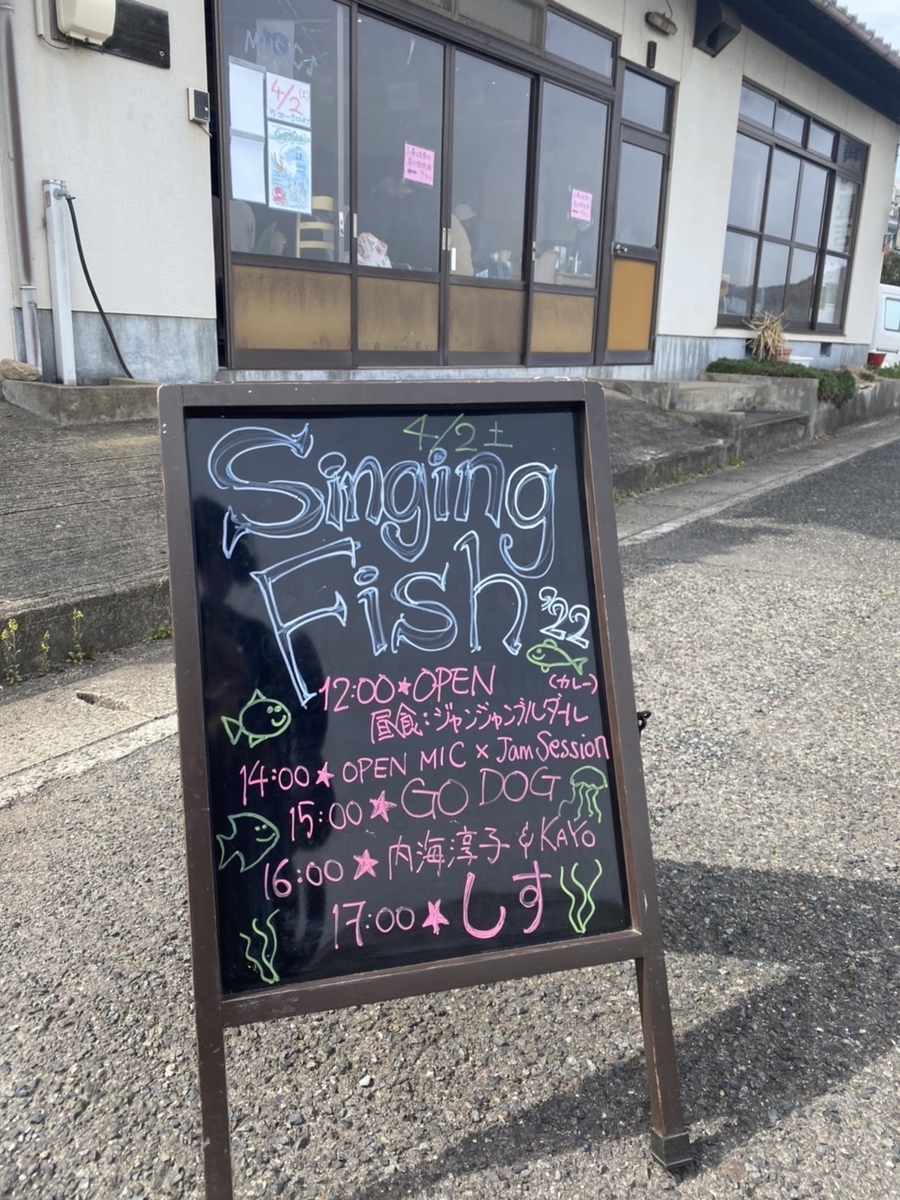 4/2
(土)
4/2 土
Singing
Fish
'22
12:00★OPEN
(カレー)
昼食:ジャンジャンブルダール
14:00★OPEN MIC × Jam Session
15:00★GO DOG
16:00★内海淳子 & KAYO
17:00★しす